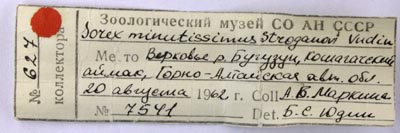 Зоологический музей СО АН СССР
№ 627
коллектора
Sorex minutissimus Stroganovi Yudin
Место Верховье р. Бугузун, Кошагачский
аймак, Горно-Алтайская авт. обл.
20 августа 1962 г. Coll. А.В. Маркина
№ 7541 Det. Б.С. Юдин